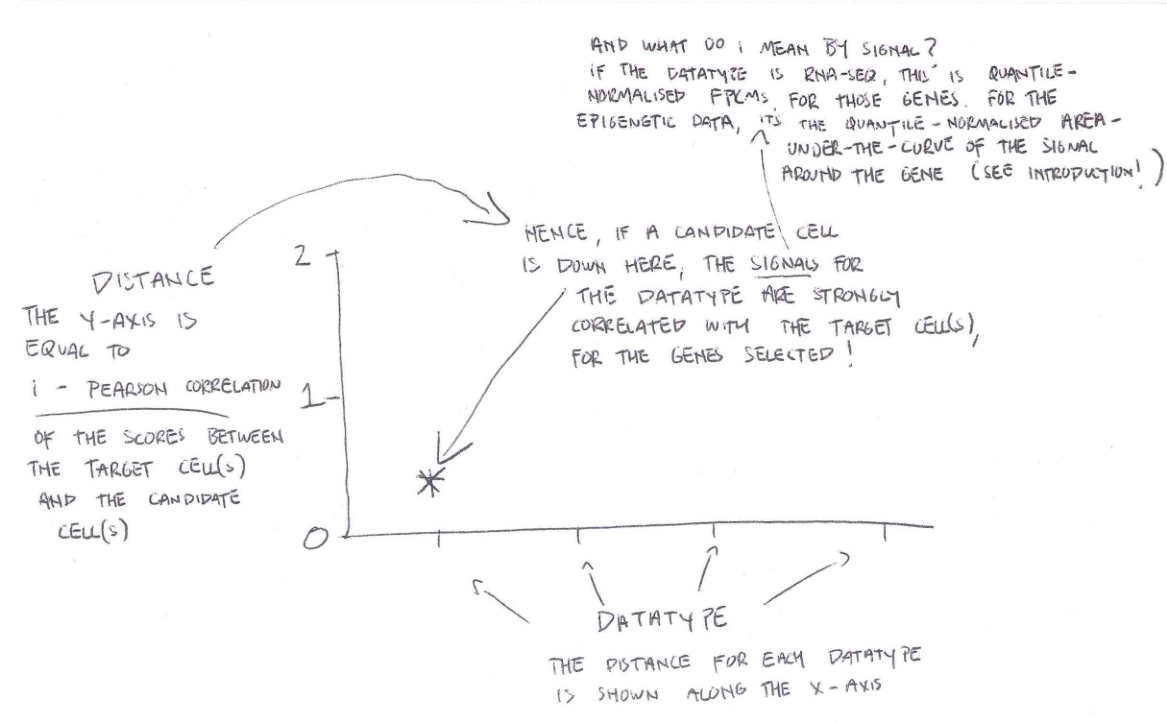 AND WHAT DO i MEAN BY SIGNAL?
iF THE DATATYPE IS RNA-SEQ, THIS IS QUANTILE-
NORMALISED FPKMS FOR THOSE GENES. FOR THE
EPIGENETIC DATA, ITS THE QUANTILE-NORMALISED AREA-
UNDER-THE-CURVE OF THE SIGNAL
AROUND THE GENE (SEE INTRODUCTION!)
HENCE, IF A CANDIDATE CELL
IS DOWN HERE, THE SIGNALS FOR
THE DATATYPE ARE STRONGLY
CORRELATED WITH THE TARGET CELL(S),
FOR THE GENES SELECTED!
DISTANCE
THE Y-AXIS IS
EQUAL TO
i - PEARSON CORRELATION
OF THE SCORES BETWEEN
THE TARGET CELL(S)
AND THE CANDIDATE
CELL(S)
2
1
0
DATATYPE
THE DISTANCE FOR EACH DATATYPE
IS SHOWN ALONG THE X-AXIS